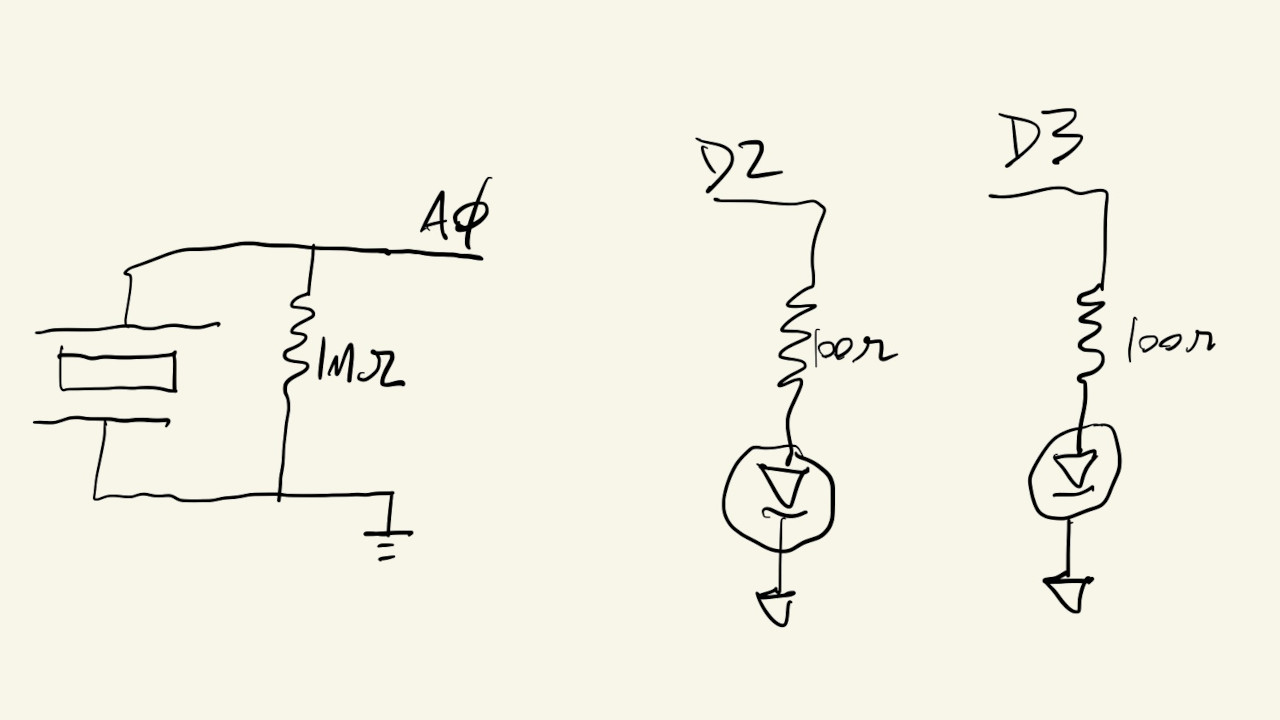 Aϕ
1MΩ
D2
100Ω
D3
100Ω